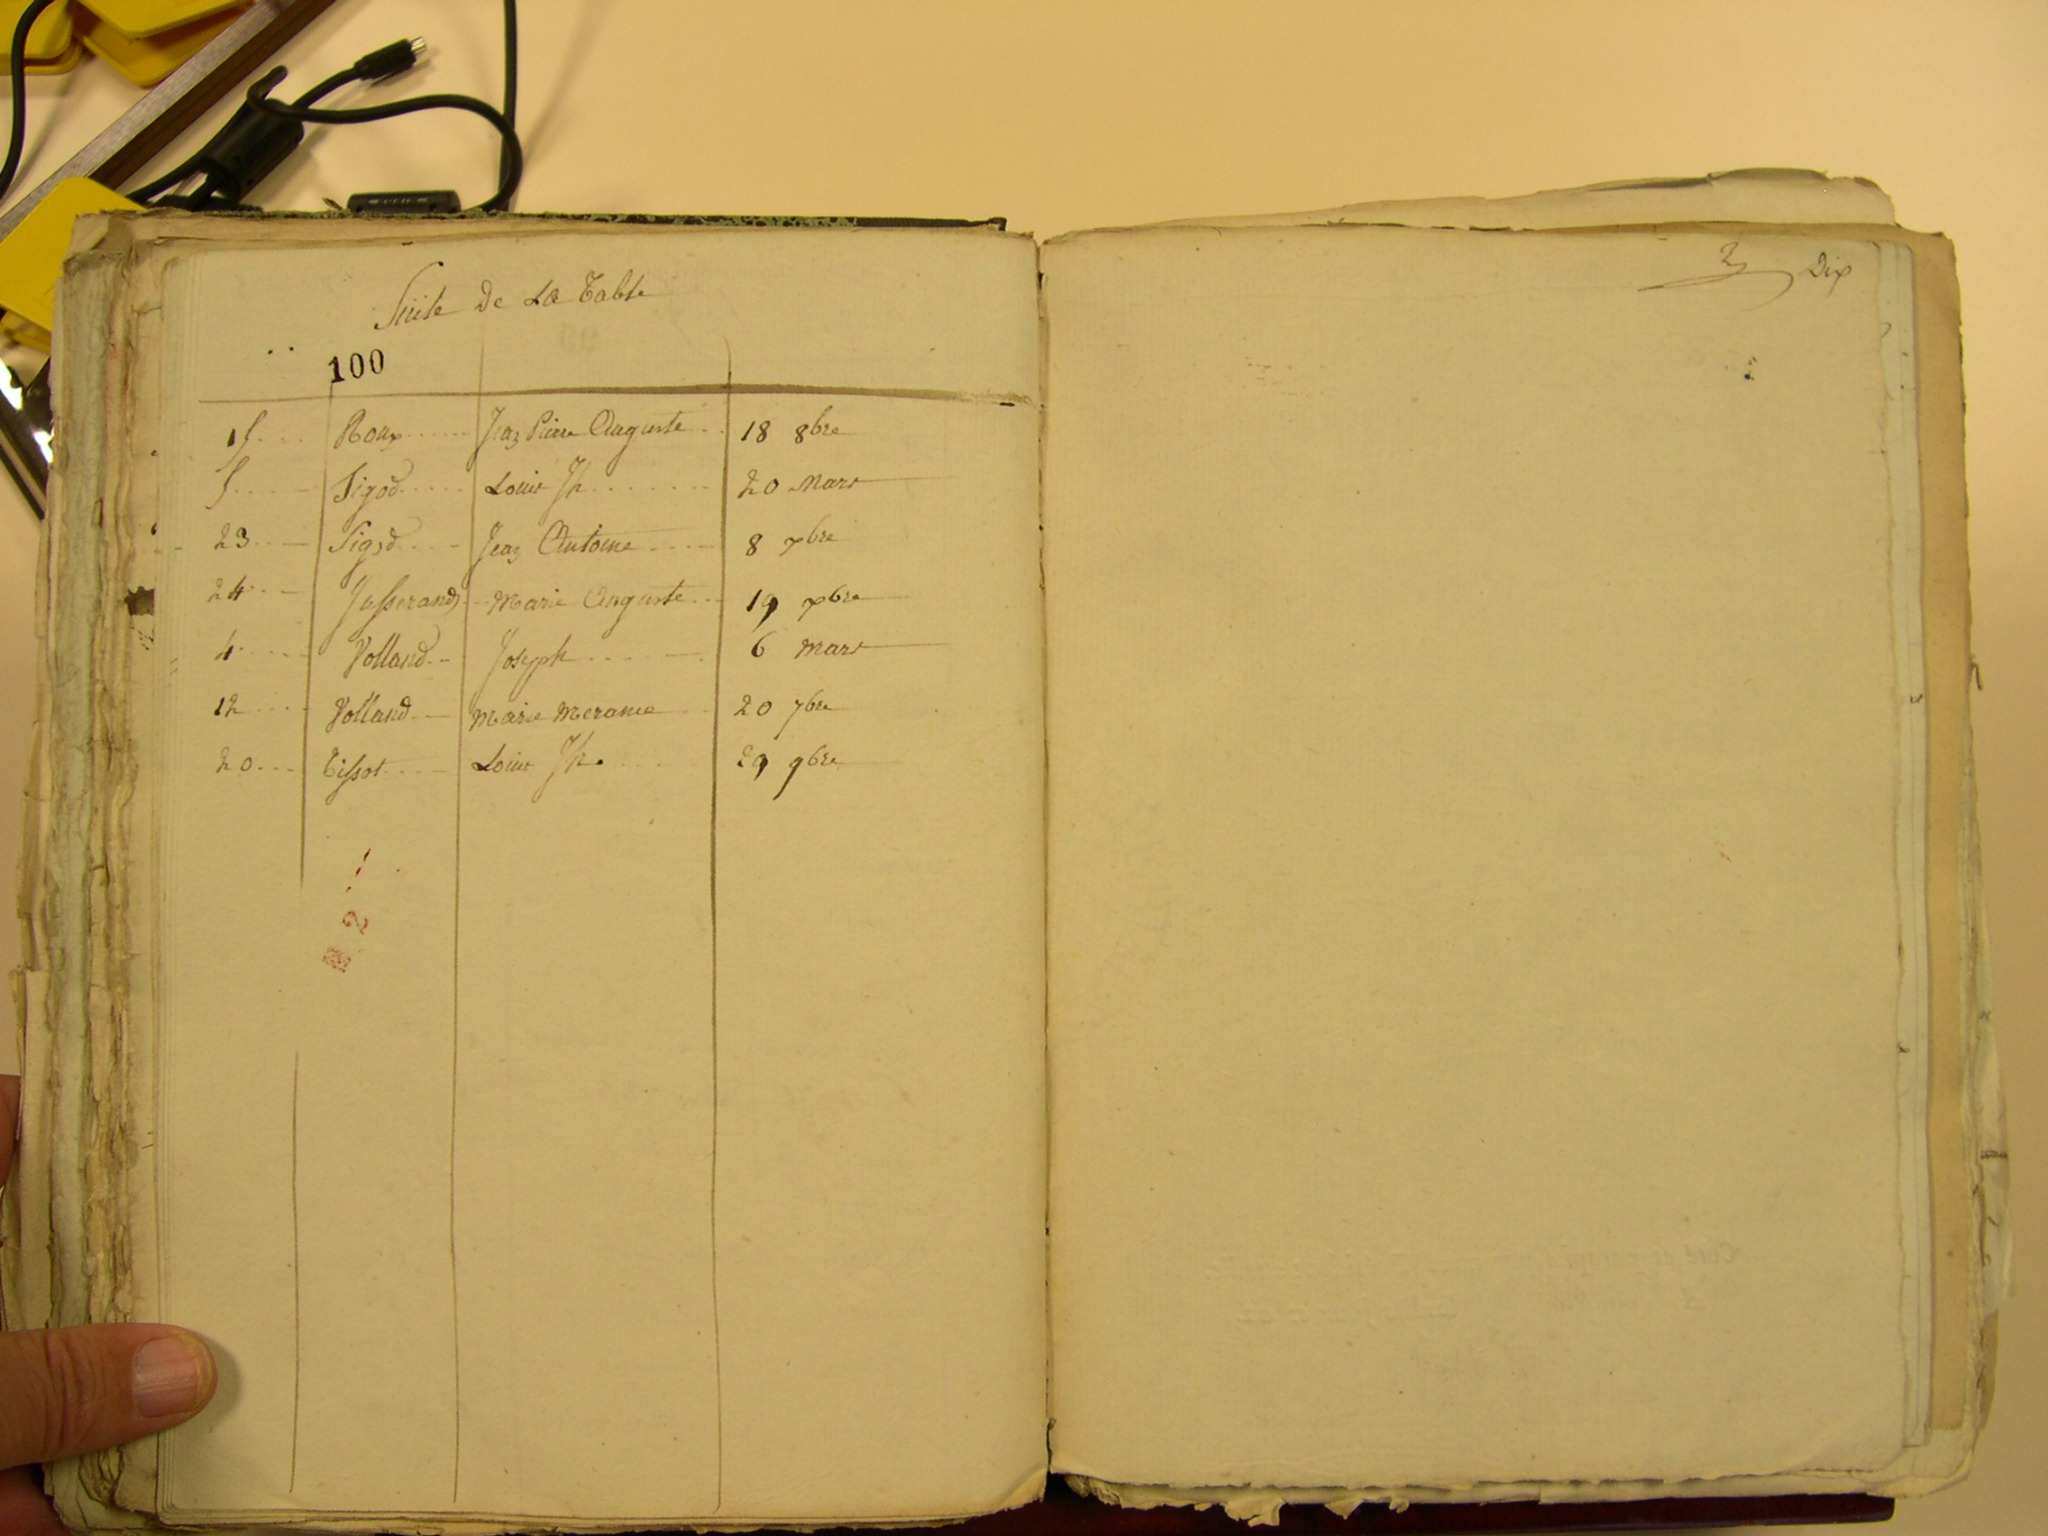 Suite De La Table
100
15 Roux Jean Pierre Auguste 18 8bre
5 Sigod Louis Jh 20 Mars
23 Sigod Jean Antoine 8 xbre
24 Jusserand Marie Auguste 19 xbre
4 Volland Joseph 6 Mars
12 Volland Marie Meranie 20 7bre
20 Tissot Louis Jh. 29 9bre
Dix